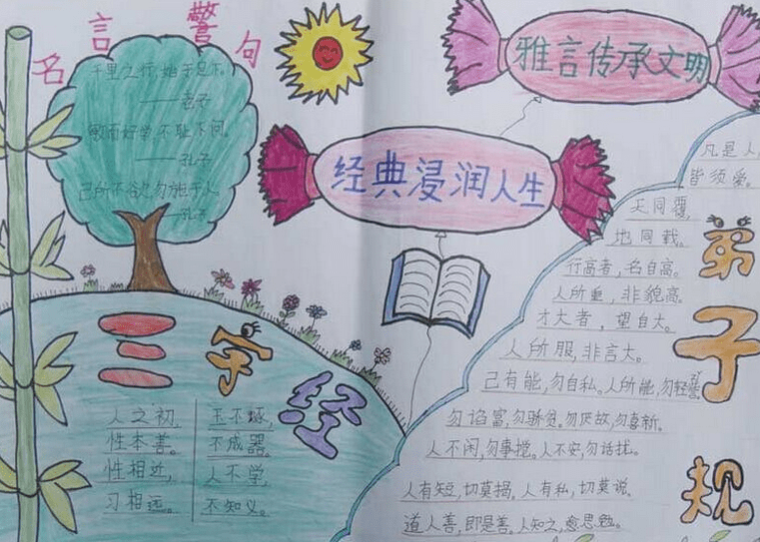 名言警句
千里之行,始于足下。
——老子
敏而好学,不耻下问。
——孔子
己所不欲,勿施于人
——孔子
雅言传承文明
经典浸润人生
三字经
人之初,
性本善。
性相近,
习相远。
玉不琢,
不成器。
人不学,
不知义。
弟子规
凡是人
皆须爱。
天同覆,
地同载。
行高者,名自高。
人所重,非貌高。
才大者,望自大。
人所服,非言大。
己有能,勿自私。人所能,勿轻訾。
勿谄富,勿骄贫。勿厌故,勿喜新。
人不闲,勿事搅。人不安,勿话扰。
人有短,切莫揭。人有私,切莫说。
道人善,即是善。人知之,愈思勉。